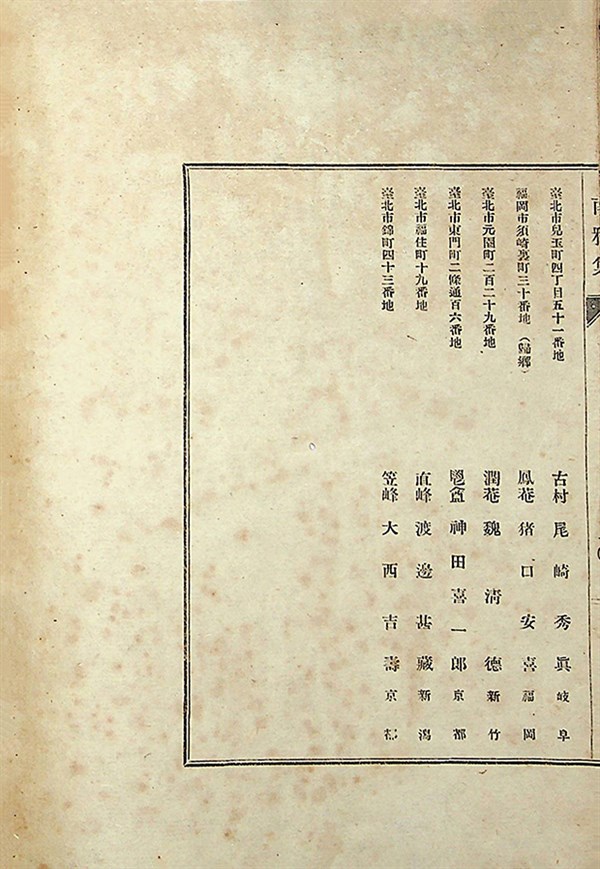 南雅集
臺北市兒玉町四丁目五十一番地 古村 尾崎秀眞 岐阜
福岡市須崎裏町三十番地（歸鄉） 鳳菴 猪口安喜 福岡
臺北市元園町二百二十九番地 潤菴 魏清德 新竹
臺北市東門町二條通百六番地 鬯盦 神田喜一郎 京都
臺北市福住町十九番地 直峰 渡邊甚藏 新潟
臺北市錦町四十三番地 笠峰 大西吉壽 京都